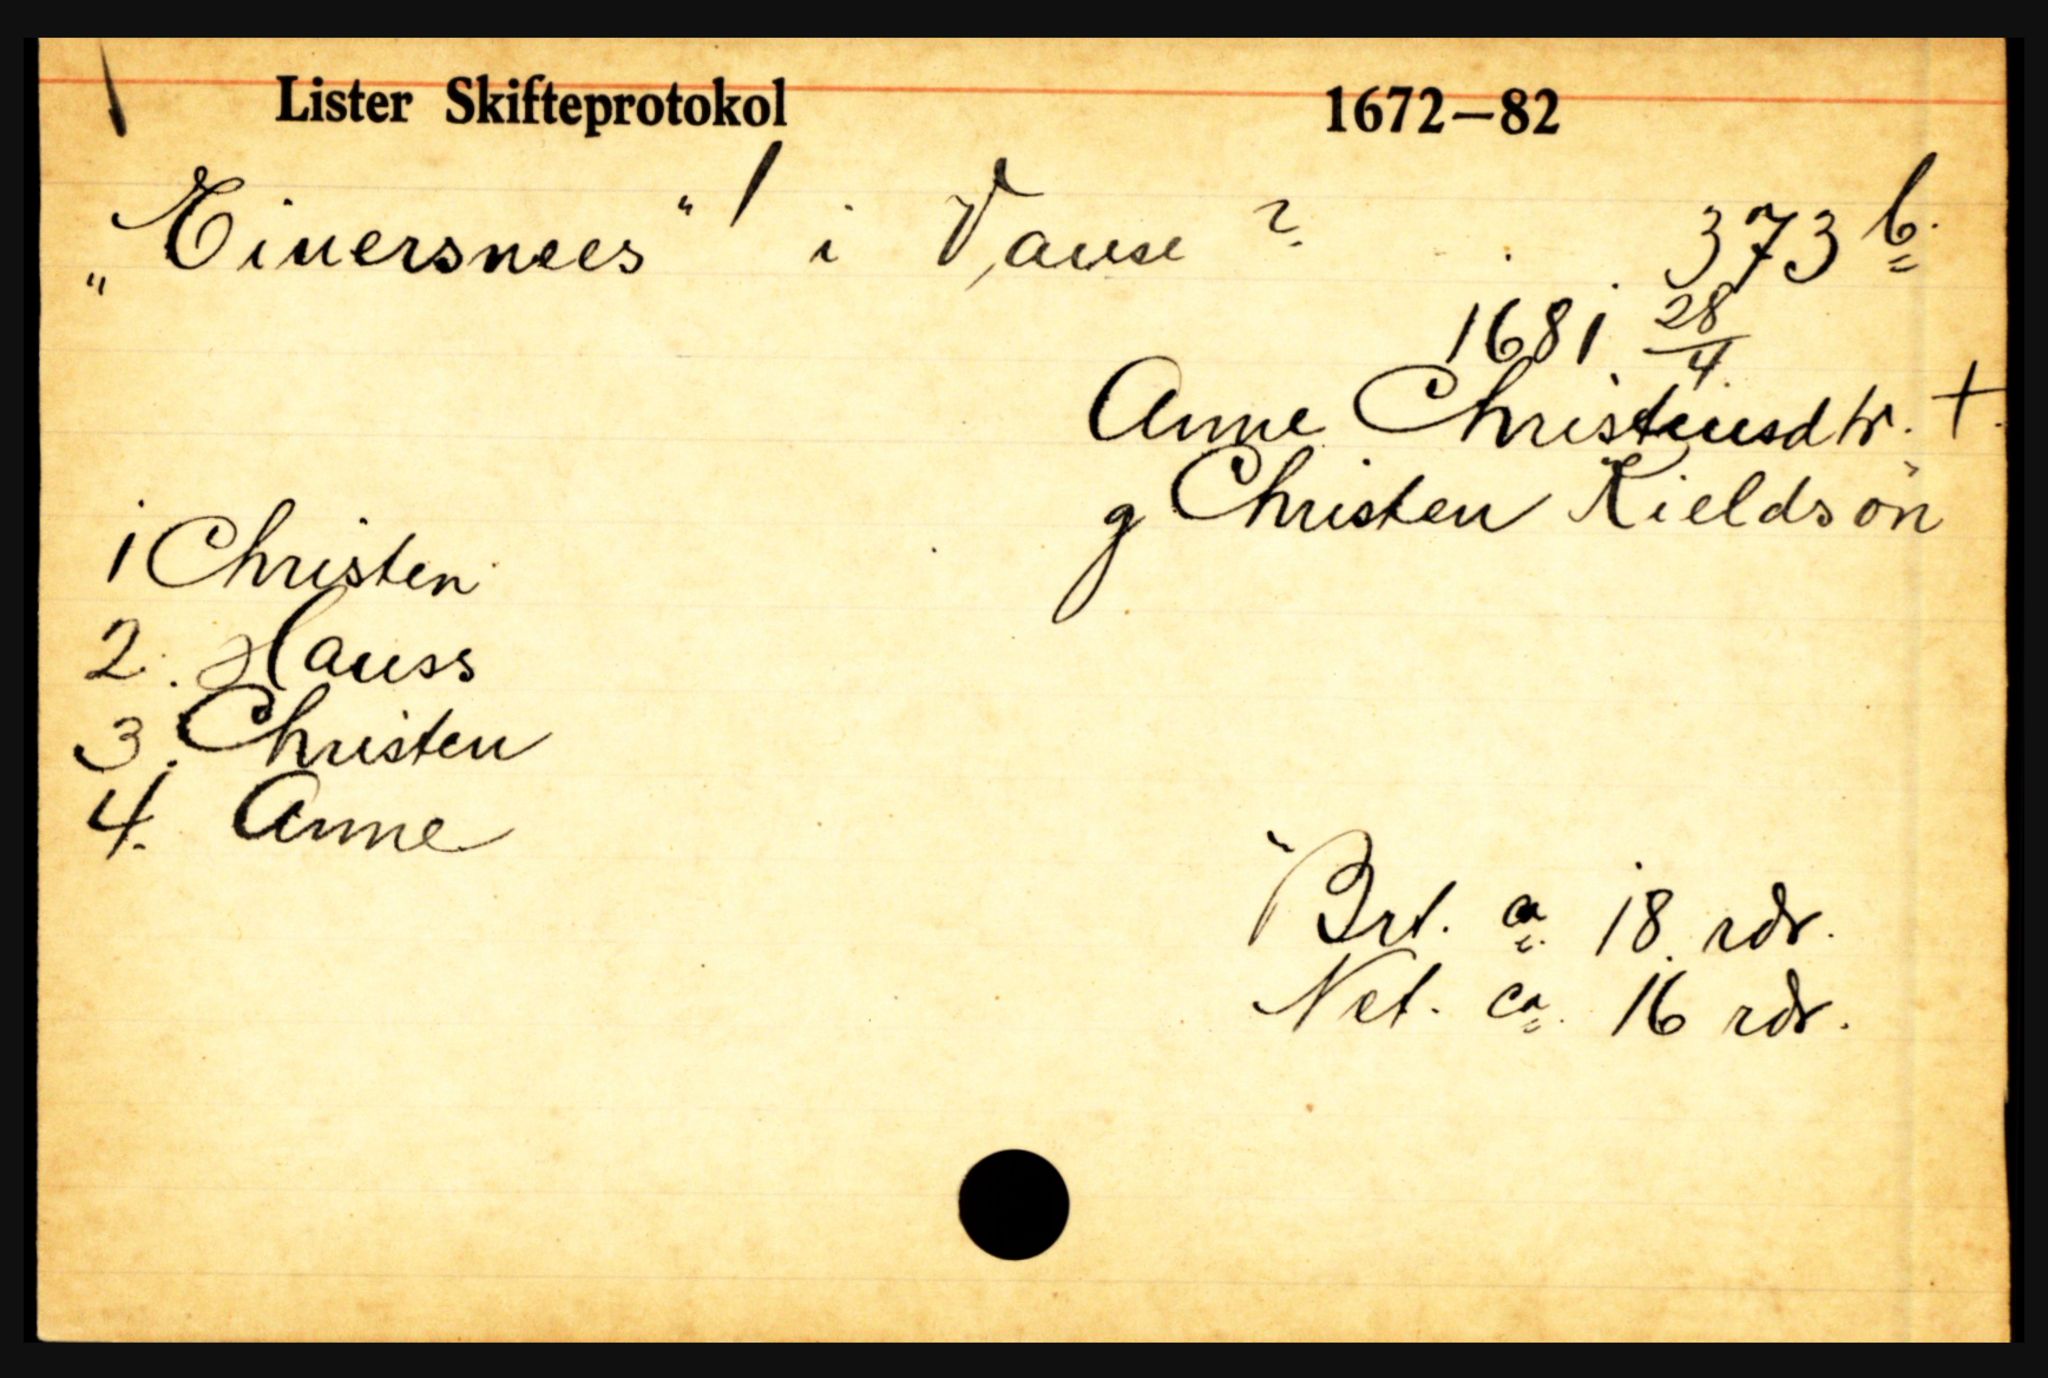 Lister Skifteprotokol 1672—82
„Einersnees" / i Vanse ? 373 b.
1681 28/4
Anne Christensdtr. +.
g Christen Kieldsøn
1 Christen
2. Hanss
3. Christen
4. Anne
Brt. ca 18 rdr.
Net. ca 16 rdr.